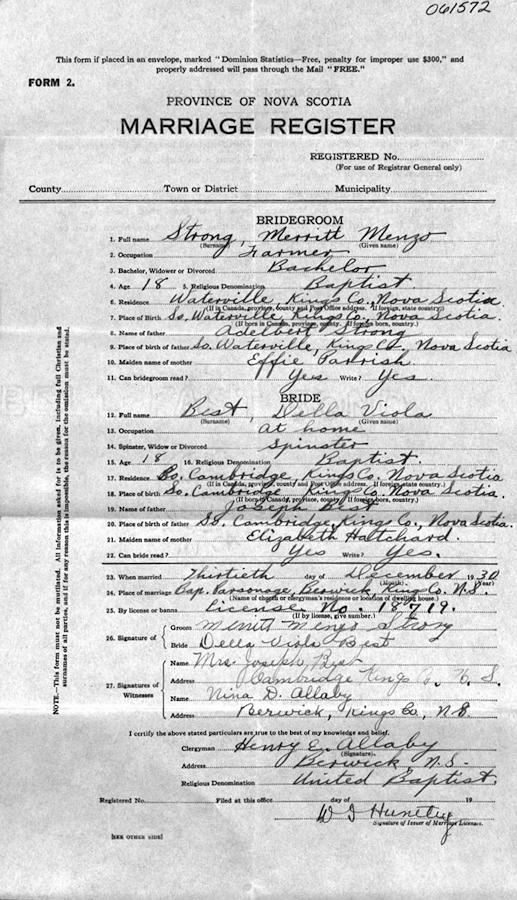 061572
This form if placed in an envelope, marked "Dominion Statistics—Free, penalty for improper use $300," and
properly addressed will pass through the Mail "FREE."
FORM 2.
PROVINCE OF NOVA SCOTIA
MARRIAGE REGISTER
REGISTERED No.
(For use of Registrar General only)
County Town or District Municipality
BRIDEGROOM
1. Full name Strong, Merritt Menzo
(Surname) (Given name)
2. Occupation Farmer
3. Bachelor, Widower or Divorced Bachelor
4. Age 18 5. Religious Denomination Baptist
6. Residence Waterville, Kings Co., Nova Scotia
(If in Canada, province, county and Post Office address. If foreign, state country.)
7. Place of Birth So. Waterville, Kings Co., Nova Scotia.
(If born in Canada, province, county. If foreign, country.)
8. Name of father Adelbert Strong
9. Place of birth of father So. Waterville, Kings Co., Nova Scotia
10. Maiden name of mother Effie Parrish
11. Can bridegroom read? Yes Write? Yes.
BRIDE
12. Full name Best, Della Viola
(Surname) (Given name)
13. Occupation At home
14. Spinster, Widow or Divorced Spinster
15. Age 18 16. Religious Denomination Baptist.
17. Residence So. Cambridge, Kings Co., Nova Scotia
(If in Canada, province, county and Post Office address. If foreign, state country.)
18. Place of birth So. Cambridge, Kings Co., Nova Scotia.
(If born in Canada, province, county. If foreign, country.)
19. Name of father Joseph Best
20. Place of birth of father So. Cambridge, Kings Co., Nova Scotia.
21. Maiden name of mother Elizabeth Hatchard.
22. Can bride read? Yes Write? Yes.
23. When married Thirtieth day of December 1930
(Month) (Year)
24. Place of marriage Bap. Parsonage, Berwick, Kings Co. N.S.
(Name of church or clergyman's residence or location of dwelling house)
25. By license or banns License No. 18719.
(If by license, give number.)
26. Signature of Groom Merritt Menzo Strong
Bride Della Viola Best
27. Signatures of Witnesses
Name Mrs. Joseph Best
Address Cambridge Kings Co. N. S.
Name Nina D. Allaby
Address Berwick, Kings Co., N.S.
I certify the above stated particulars are true to the best of my knowledge and belief.
Clergyman Henry E. Allaby
(Signature).
Address Berwick, N.S.
Religious Denomination United Baptist.
Registered No. Filed at this office day of 19
Signature of Issuer of Marriage Licenses.
[SEE OTHER SIDE]
NOTE.—This form must not be mutilated. All information asked for is to be given, including full Christian and
surnames of all parties, and if for any reason this is impossible, the reason for the omission must be stated.